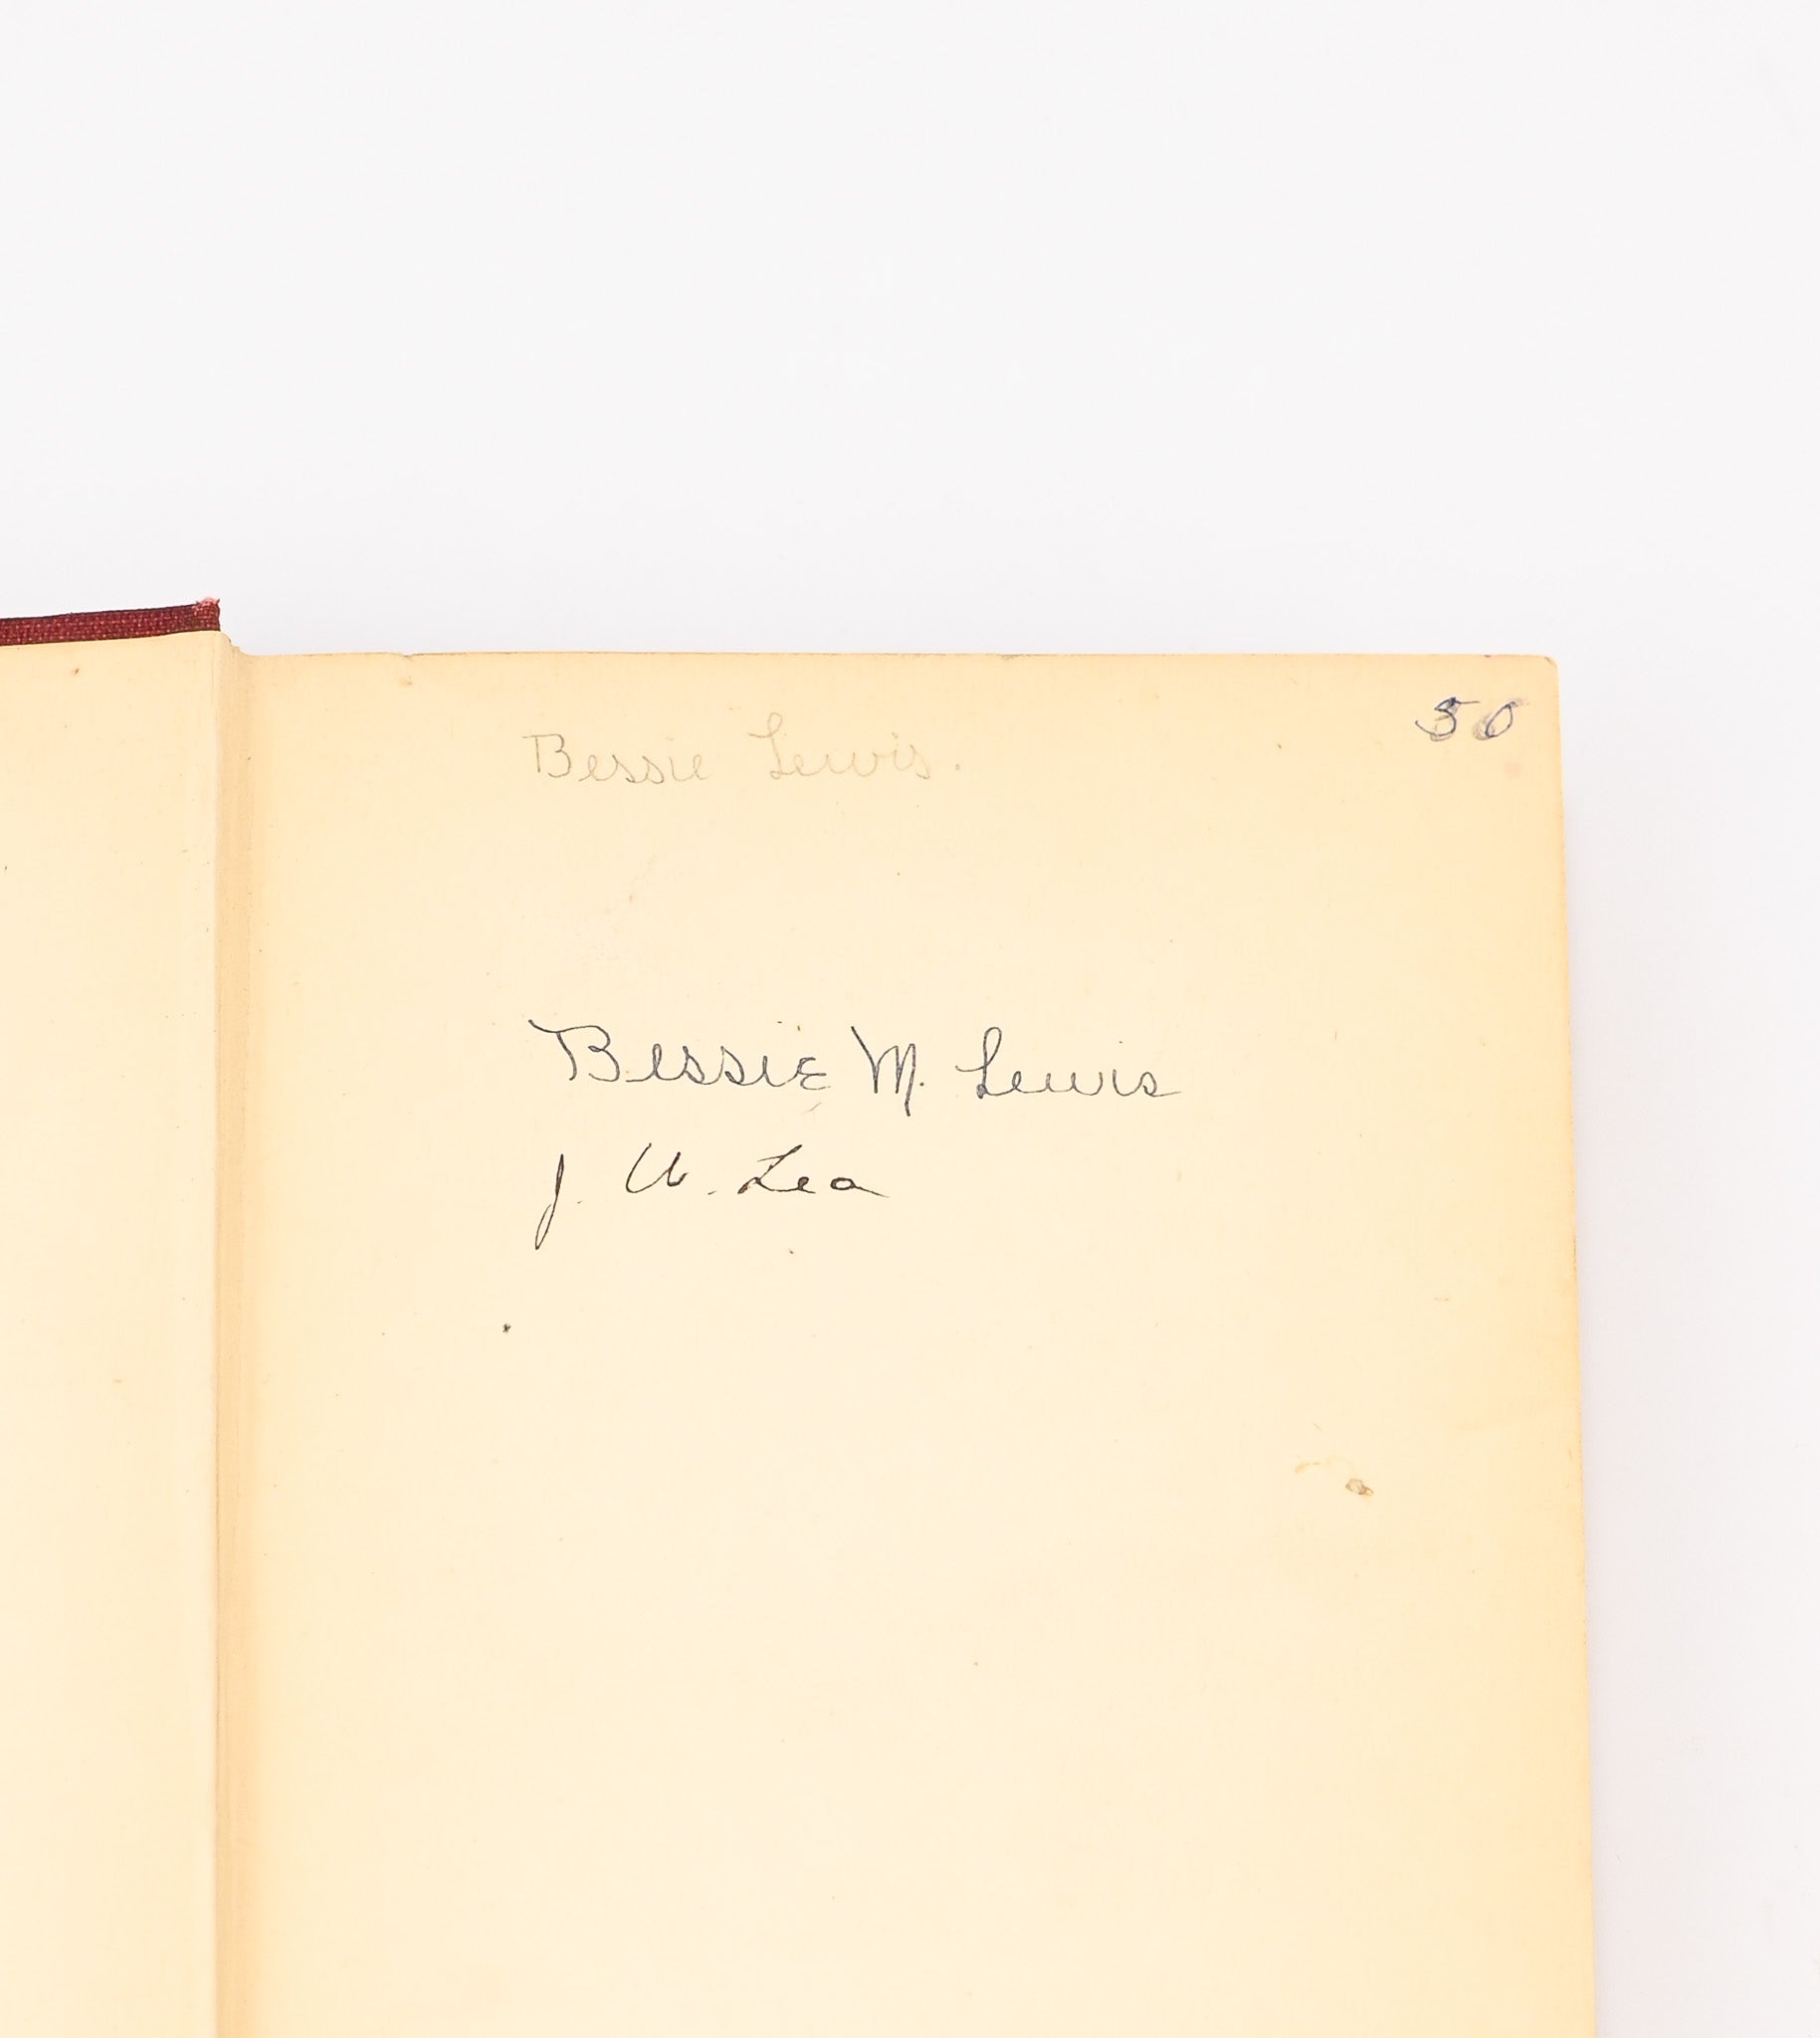 50
Bessie Lewis.
Bessie M. Lewis
J. W. Lea